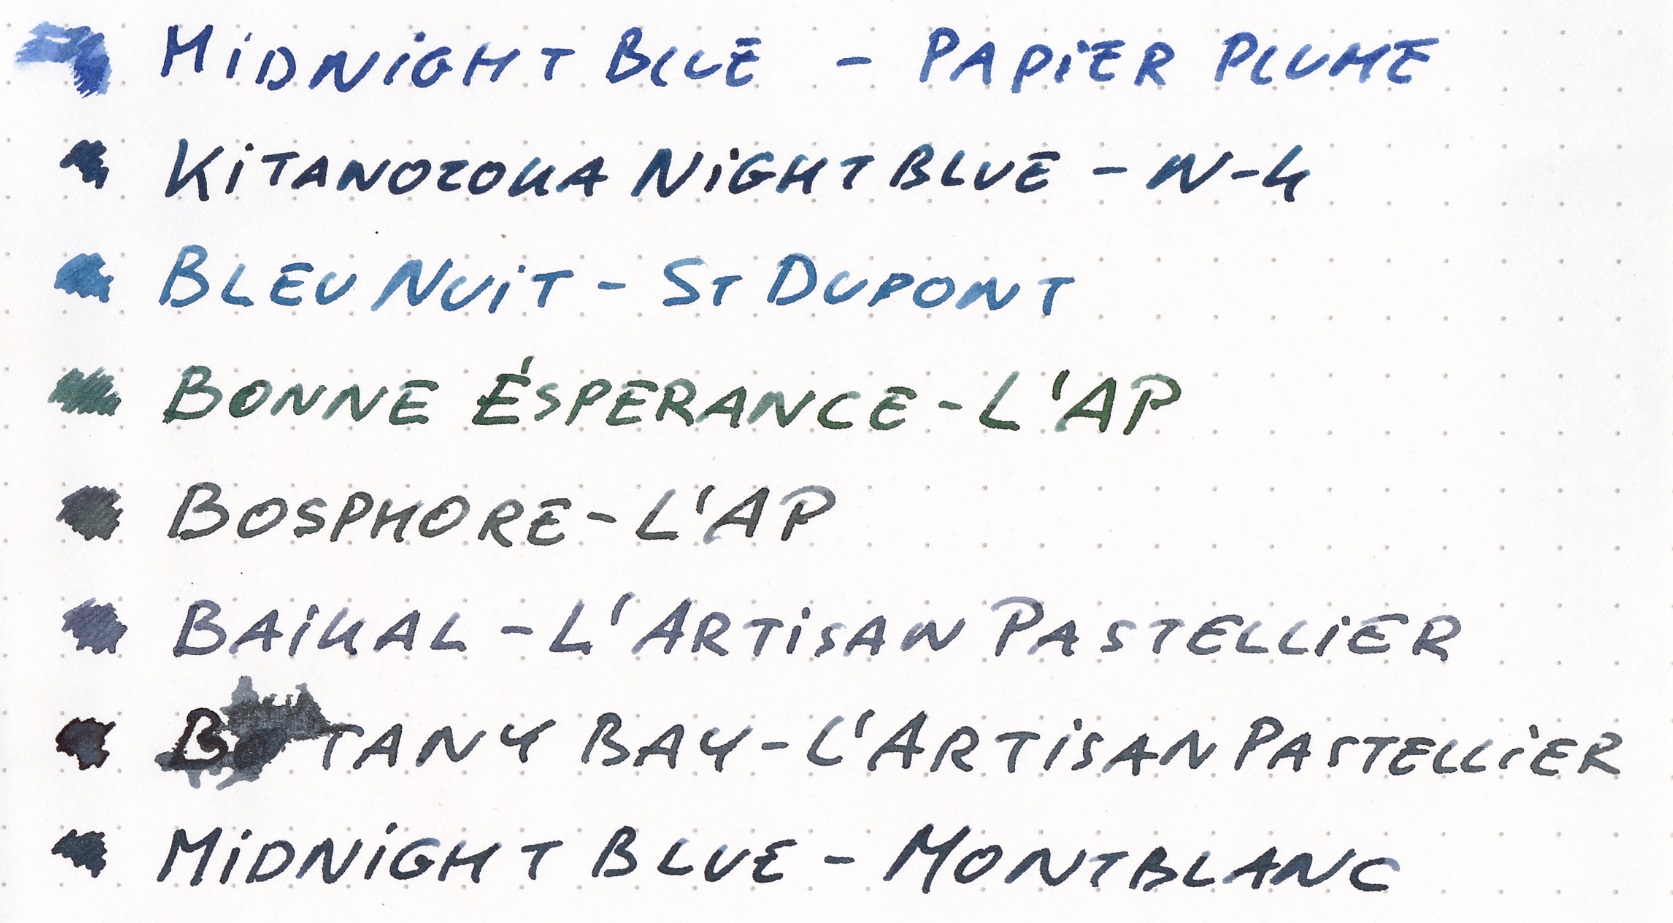 MiDNiGHT BLUE - PAPiER PLUME
KiTANOZOKA NiGHT BLUE - N-4
BLEU NUiT - ST DUPONT
BONNE ÉSPERANCE - L'AP
BOSPHORE - L'AP
BAiKAL - L'ARTiSAN PASTELLiER
BOTANY BAY - L'ARTiSAN PASTELLiER
MiDNiGHT BLUE - MONTBLANC